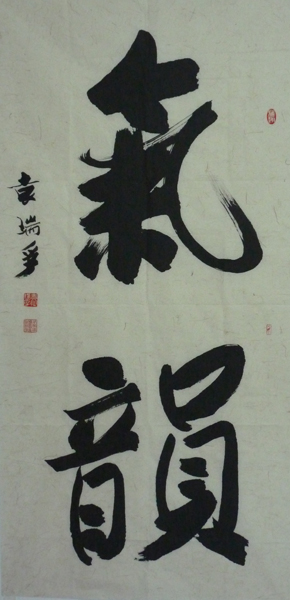 氣韻
袁瑞